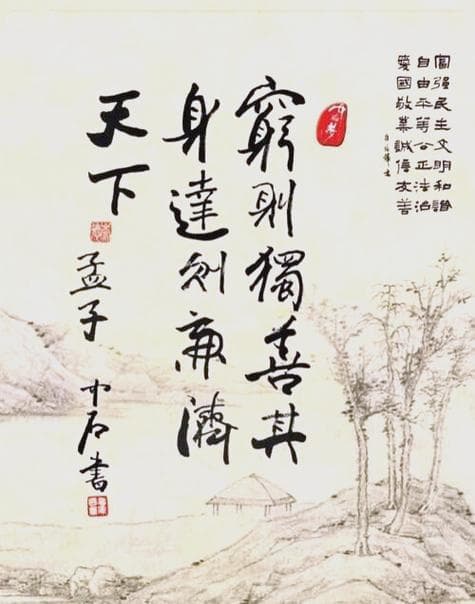 富强民主文明和諧
自由平等公正法治
愛國敬業誠信友善
窮則獨善其
身達則兼濟
天下
孟子 中石書